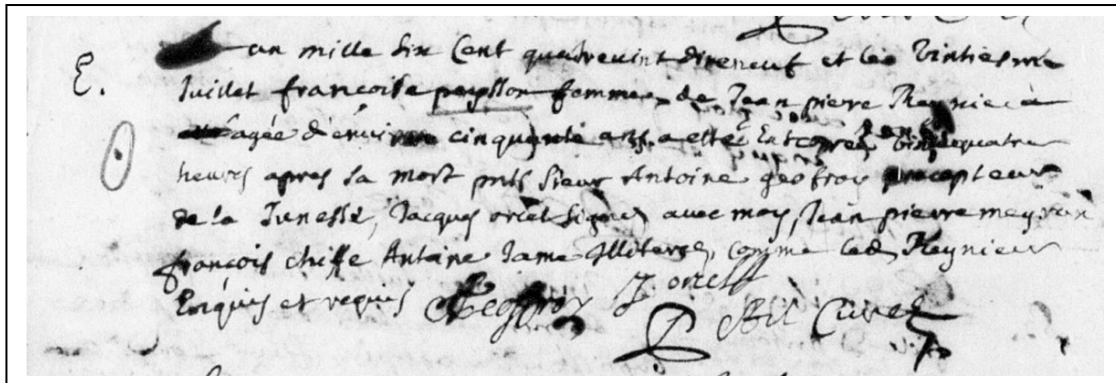 E.
an mille Six Cent quatrevint dixneuf et le vintiesme
Juillet francoise peyssson femme de Jean pierre Reynier
agée d'environ cinquante ans a esté Enterrée vingt quatre
heures apres sa mort pnts Sieur Antoine geofroy precepteur
de la Junesse, Jacques orcel signes avec moy, Jean pierre meyran
françois chiffe Antoine Jame illiteres, comme led Reynier
Enquis et requis Geoffroy J orcel
Curé